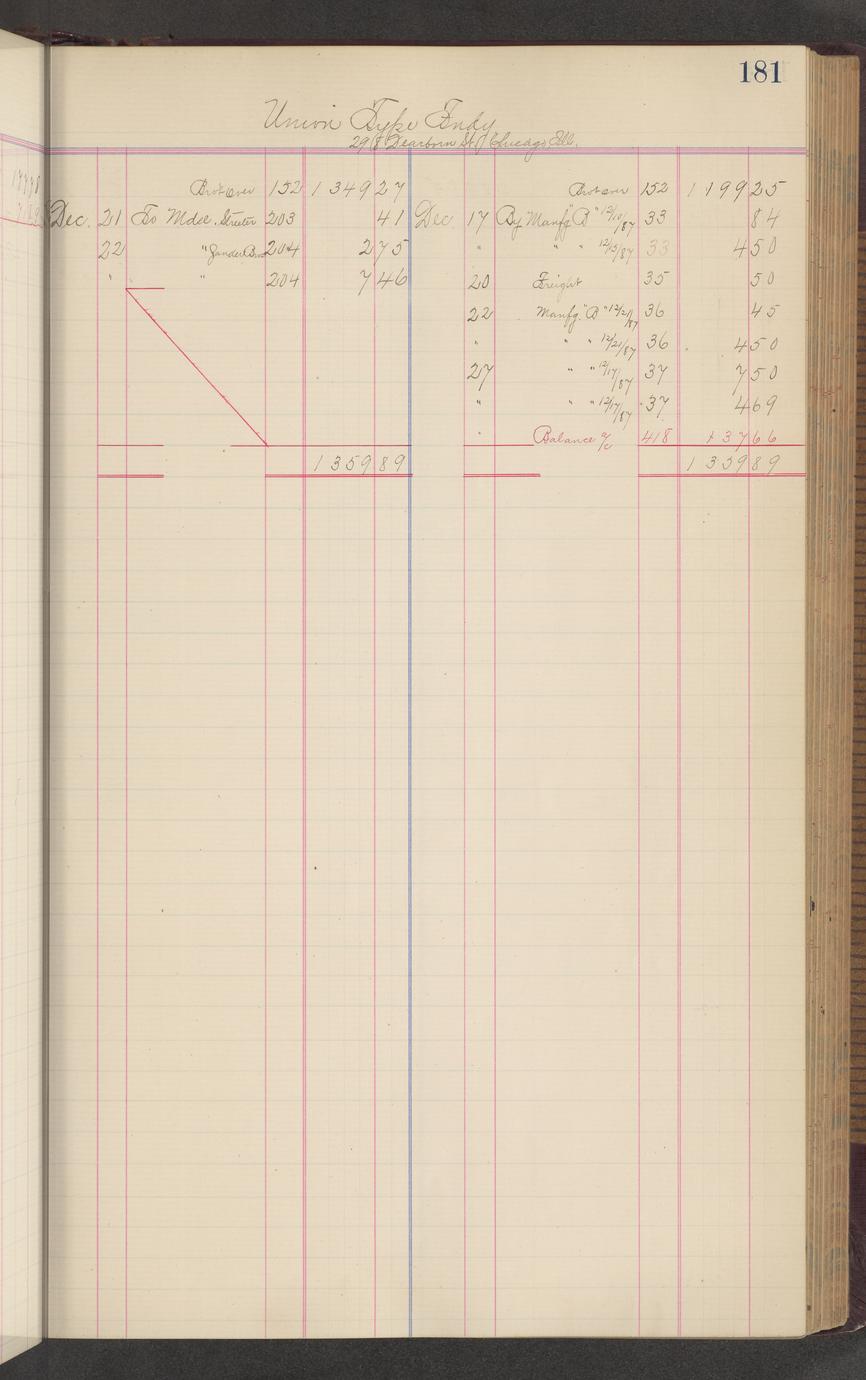 181
Union Type Fndy
298 Dearborn St. Chicago Ill.
Brot over 152 1349 27 Brot over 152 1199 25
Dec. 21 To Mdse. Streeter 203 41 Dec 17 By Manfg "B" 12/10/87 33 84
22 " Gander Bros 204 2 75 " " " 12/15/87 33 4 50
" " 204 7 46 20 Freight 35 50
22 Manfg. "B" 12/21/87 36 45
" " " 12/21/87 36 4 50
27 " " 12/17/87 37 7 50
" " " 12/17/87 37 4 69
" Balance a/c 418 137 66
1359 89 1359 89